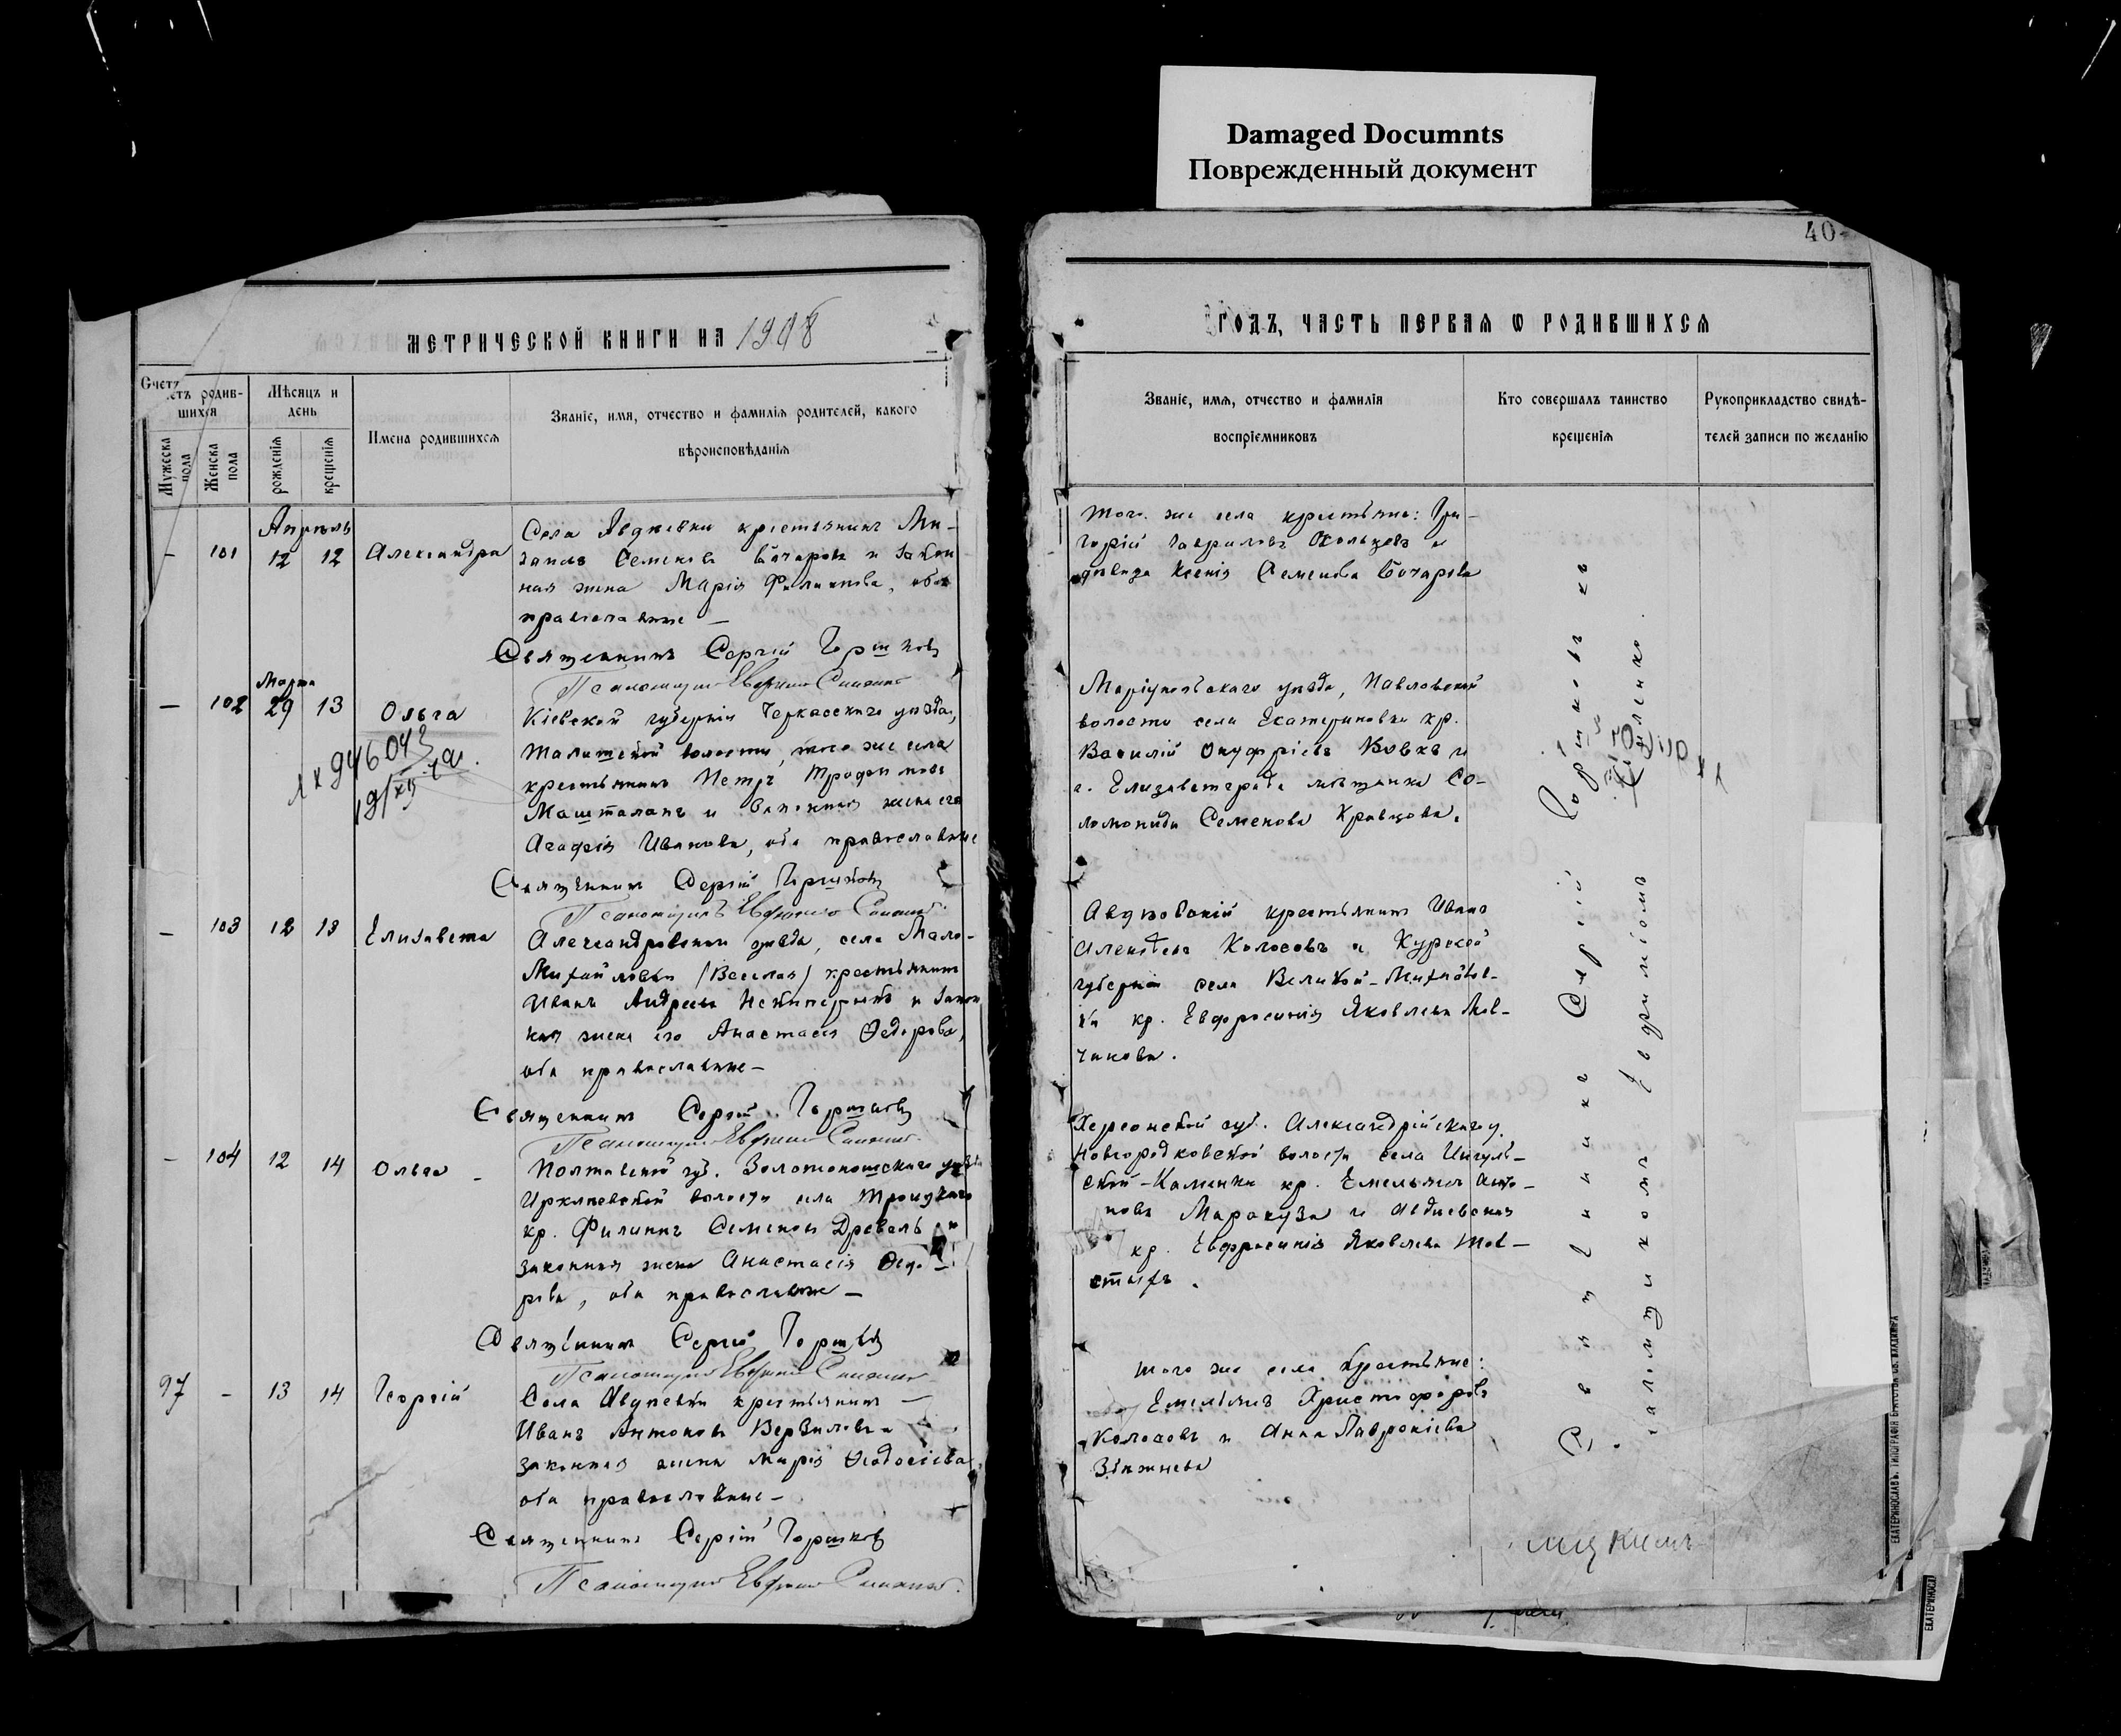 Damaged Documnts
Поврежденный документ
40
МЕТРИЧЕСКОЙ КНИГИ НА 1908
ГОДЪ, ЧАСТЬ ПЕРВАЯ Ѡ РОДИВШИХСЯ
Счетъ родив-
шихся
Мужеска пола
Женска пола
Мѣсяцъ и
день
рожденія
крещенія
Имена родившихся
Званіе, имя, отчество и фамилія родителей, какого
вѣроисповѣданія
Званіе, имя, отчество и фамилія
воспріемниковъ
Кто совершалъ таинство
крещенія
Рукоприкладство свидѣ-
телей записи по желанію
Апрѣль
– 101 12 12 Александра
Села Авдѣевки крестьянинъ Ми-
хаилъ Семеновъ Бочаровъ и закон
ная жена Марія Филипова, оба
православные –
Священникъ Сергій Горшковъ
Псаломщикъ Евфимій
Того же села крестьяне: Гри-
горій Гавриловъ и
дѣвица Ксенія Семенова Бочарова
Марта
– 102 29 13 Ольга
Кіевской губерніи Черкасскаго уѣзда,
волости, того же села
крестьянинъ Петръ Трофимовъ
Машталаръ и законная жена его
Агафія Иванова, оба православные
Священникъ Сергій Горшковъ
Псаломщикъ Евфимій
Маріупольскаго уѣзда, Павловской
волости села Екатериновки кр.
Василій Онуфріевъ Вовкъ и
г. Елизаветграда мѣщанка Со-
ломонида Семенова Кравцова.
– 103 12 13 Елизавета
Александровскаго уѣзда, села Мало-
Михайловки (Веселая) крестьянинъ
Иванъ Андреевъ и закон
ная жена его Анастасія Ѳедорова,
оба православные –
Священникъ Сергій Горшковъ
Псаломщикъ Евфимій
Авдѣевскій крестьянинъ Иванъ
Алексѣевъ Колосовъ и Курской
губерніи села Великой-Михайлов-
ки кр. Евфросинія Яковлева
чикова.
– 104 12 14 Ольга –
Полтавской губ. Золотоношскаго уѣзда
Ирклѣевской волости села Троицкаго
кр. Филиппъ Семеновъ Древаль и
законная жена Анастасія Ѳедо-
рова, оба православные –
Священникъ Сергій Горшковъ
Псаломщикъ Евфимій
Херсонской губ. Александрійскаго у.
Новгородковской волости села Ингуль-
ской-Каменки кр. Емельянъ Анто-
новъ Маракуза и Авдѣевская
кр. Евфросинія Яковлева Тол-
стыхъ.
97 – 13 14 Георгій
Села Авдѣевки крестьянинъ –
Иванъ Антоновъ и
законная жена Марія Ѳеодосіева,
оба православные –
Священникъ Сергій Горшковъ
Псаломщикъ Евфимій
Того же села крестьяне:
Емельянъ Христофоровъ
Колосовъ и Анна Лаврентіева
Священникъ Сергій Горшковъ съ
псаломщикомъ Евфиміемъ
ЕКАТЕРИНОСЛАВЪ. ТИПОГРАФІЯ БРАТСТВА СВ. ВЛАДИМІРА